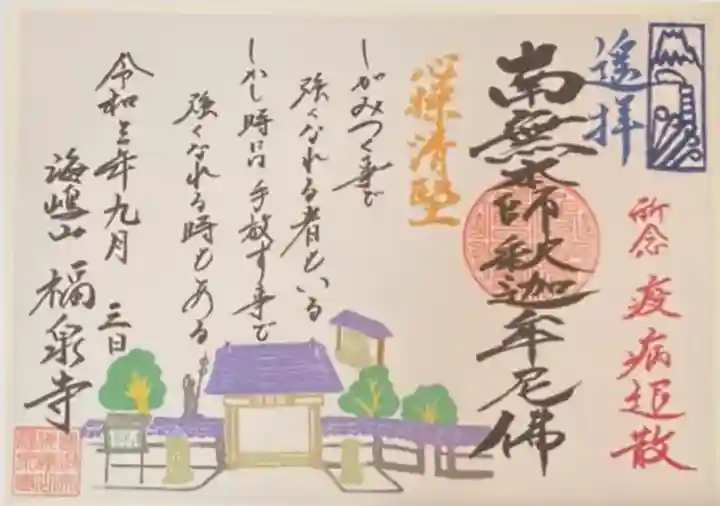 遙拝
所念 疫病退散
南無本師釈迦牟尼佛
心操清堅
しがみつく事で
強くなれる者もいる
しかし時には手放す事で
強くなれる時もある
令和三年九月 三日
海嶋山 福泉寺